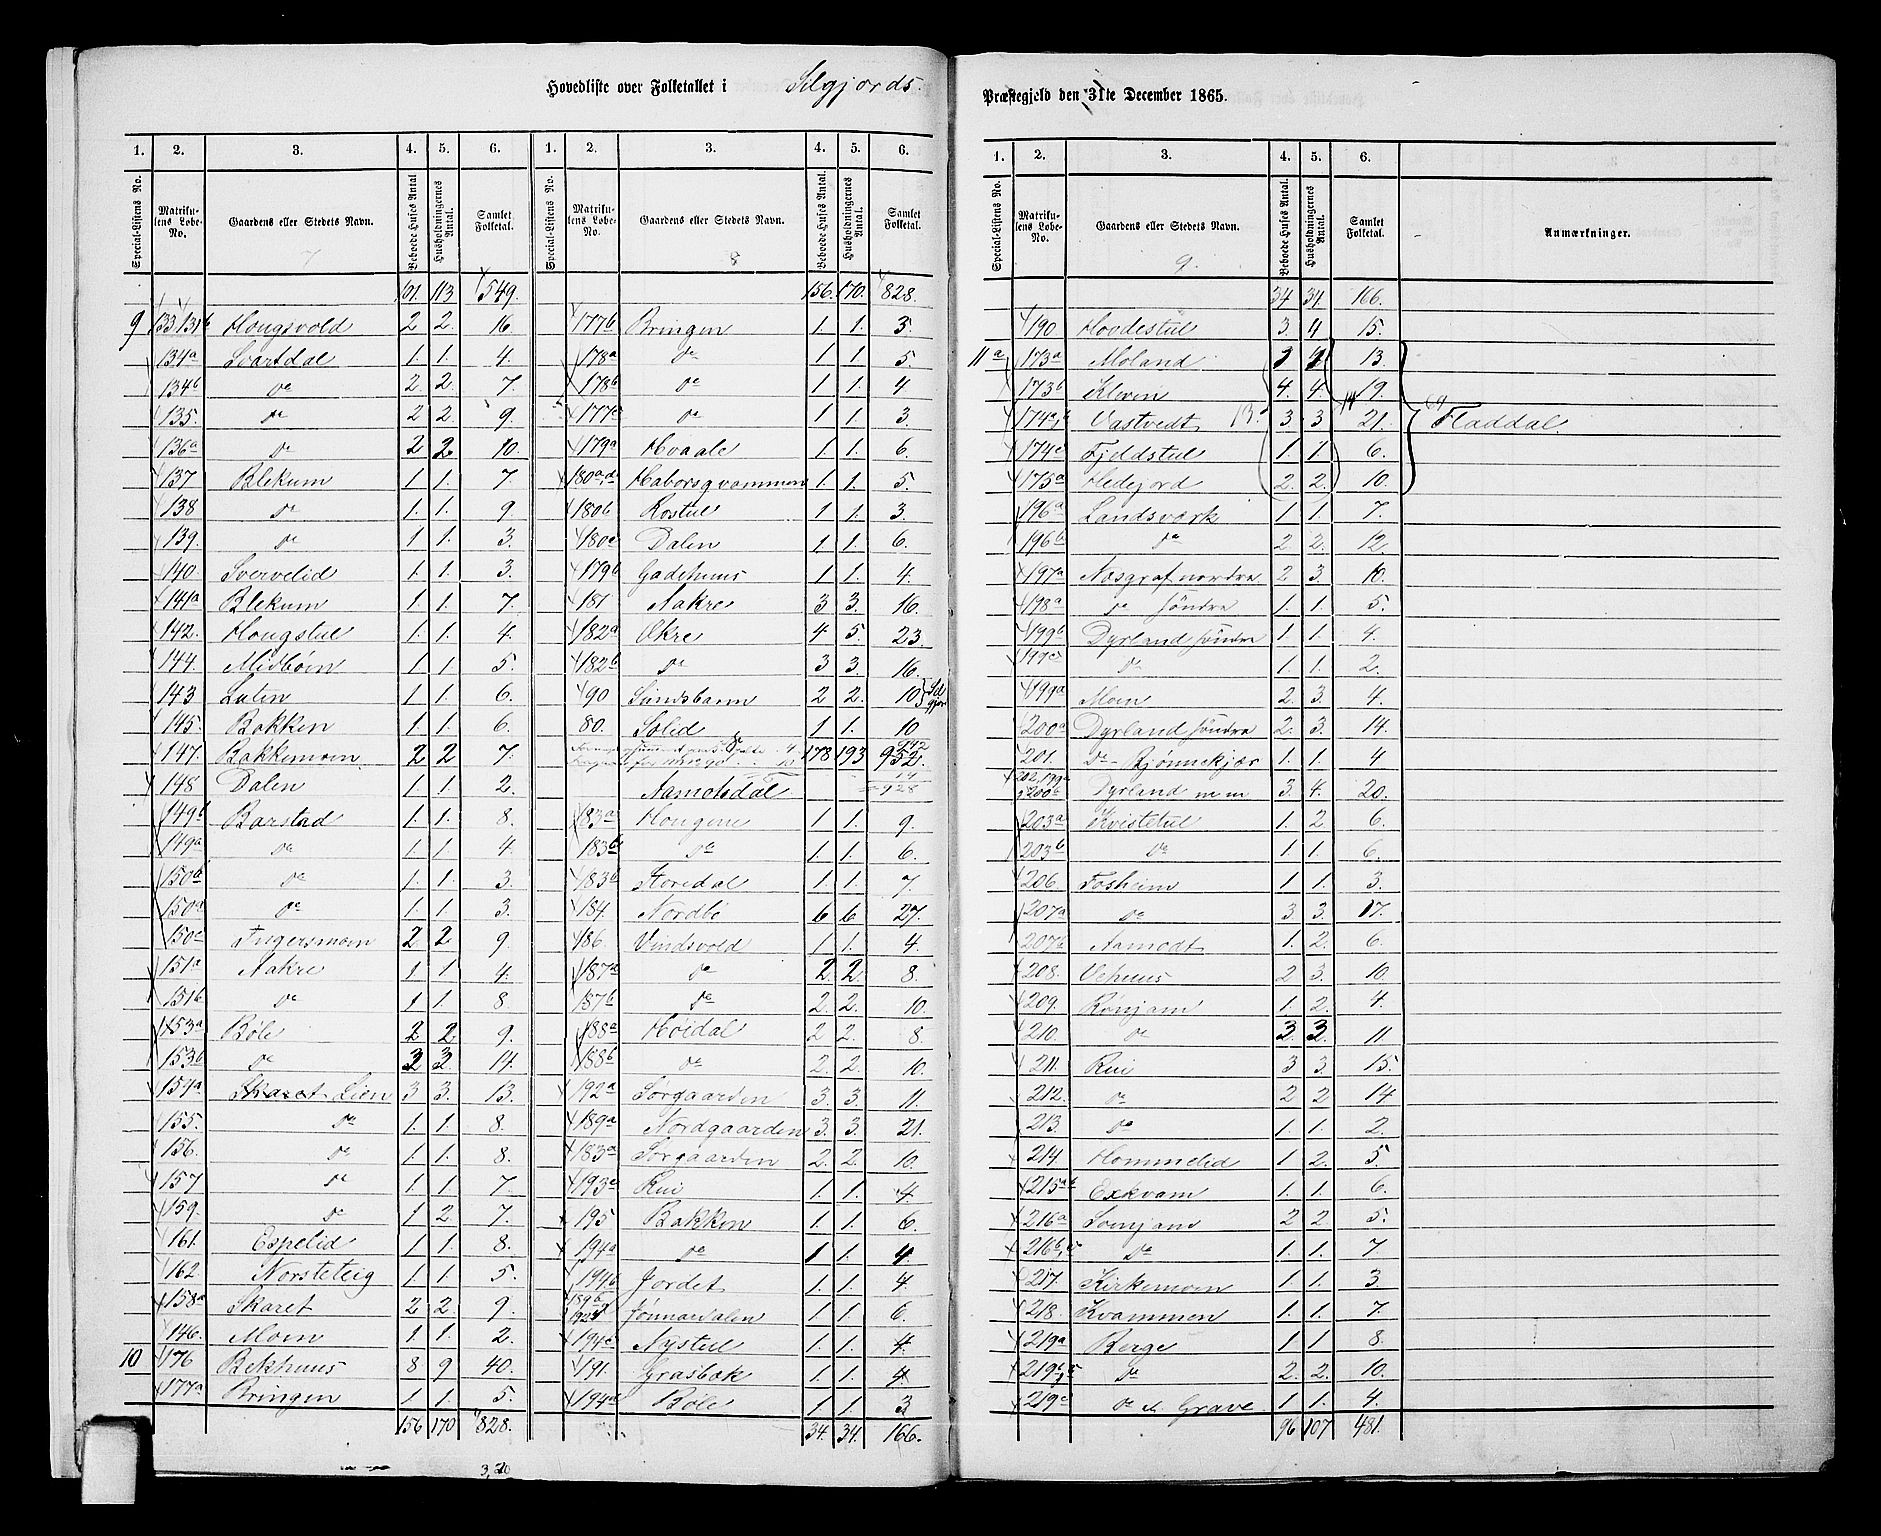 Hovedliste over Folketallet i Silgjords
Præstegjeld den 31te December 1865.
1. 2. 3. 4. 5. 6. 1. 2. 3. 4. 5. 6.
Special-Listens No. Matrikulens Løbe-No. Gaardens eller Stedets Navn. Beboede Huses Antal. Husholdningernes Antal. Samlet Folketal. Special-Listens No. Matrikulens Løbe-No. Gaardens eller Stedets Navn. Beboede Huses Antal. Husholdningernes Antal. Samlet Folketal.
7 8
101. 113 549. 156. 170. 828.
9 133 131b Hougsvold 2 2. 16. 177b Bringen 1. 1. 3.
134a Svartdal 1. 1. 4. 178a do 1 1. 5
134b do 2. 2. 7. 178b do 1 1. 4
135. do 2 2. 9. 177c do 1 1. 3
136a do 2 2 10. 179a Hvaale 1. 1. 6.
137 Blekum 1. 1. 7. 180a,d Haborsqvammen 1. 1. 5.
138 do 1. 1. 9. 180b Rostul 1 1. 3.
139. do 1 1. 3. 180c Dalen 1 1. 6.
140. Svervelid 1. 1. 3. 179b Gadehuus 1 1. 4.
141a Blekum 1. 1. 7. 181 Aakre 3 3. 16.
142. Hougstul 1. 1. 4. 182a Økre 4 5. 23.
144. Midbøin 1 1. 5. 182b do 3 3. 16.
143 Luten 1 1. 6. 90 Sundsbarm 2 2. 10
145. Bakken 1 1. 6. 80. Solid 1 1. 10
147. Bakkemoen 2 2 7. 178 193 952.
148 Dalen 1 1. 2. Aamotsdal 928
149b Barstad 1. 1. 8. 183a Hougene 1 1. 9.
149a do 1 1. 4. 183b do 1. 1. 6.
150b do 1. 1. 3. 183b Storedal 1 1. 7.
150a do 1 1. 3. 184. Nordbø 6 6. 27.
150c Ingersmoen 2 2 9. 186. Vindsvold 1 1. 4.
151a Aakre 1 1. 4. 187a do 2. 2. 8.
151b do 1 1. 8. 187b do 2. 2. 10.
153a Bøle 2 2 9. 188a Høidal 2 2. 8
153b do 3 3. 14. 188b do 2. 2. 10.
154a Skaret Lien 3 3. 13. 192a Sørgaarden 3. 3. 11.
155. do 1. 1. 8. 189a Nordgaarden 3. 3. 21.
156. do 1 1. 8. 183a Sørgaarden 2. 2. 10.
157 do 1 1. 7. 193c Rui 1. 1. 4.
159. do 1 2. 7. 195 Bakken 1. 1. 6.
161. Espelid 1 1. 8. 194a do 1 1. 4
162. Norsteteig 1 1. 5. 194b Jordet 1 1. 4.
158a Skaret 2 2. 9. 189b Jonnardalen 1 1. 6.
146. Moen 1 1. 2. 194c Nystul 1 1. 4.
10 176 Bekhuus 8 9 40. 191. Grasbæk 1 1. 4.
177a Bringen 1 1. 5. 194d Bøle 1 1. 3.
156 170 828. 34. 34. 166.
3,20
1. 2. 3. 4. 5. 6.
Special-Listens No. Matrikulens Løbe-No. Gaardens eller Stedets Navn. Beboede Huses Antal. Husholdningernes Antal. Samlet Folketal. Anmærkninger.
9.
34 34. 166.
190 Hovdestul 3. 4 15.
11a 173a Moland 3 4 13.
173b Kleven 4. 4. 19.
174a,b Vastvedt 13. 3 3 14 21. 69 Fladdal.
174c Fjeldstul 1. 1. 6.
175a Hedejord 2. 2. 10.
196a Landsværk 1 1. 7.
196b do 2. 2. 12.
197a Næsgraf nordre 2 3. 10.
198a do søndre 1. 1. 5.
199b Dyrland søndre 1. 1. 4.
199c do 1 1. 2.
199a Moen 2. 3. 4.
200a Dyrland søndre 2. 3. 14.
201. do Bjønnekjær 1. 1. 4
202, 199a 200b Dyrland m m 3. 4. 20.
203a Kvistetul 1. 2 6.
203b do 1. 1. 6.
206. Fosheim 1 1. 3.
207a do 3 3. 17.
207b Aamodt 1. 2. 6.
208. Vehuus 2 3. 10
209. Rønjam 1 2. 4.
210. do 3. 3. 11.
211. Rui 3 3. 15.
212. do 2 2 14
213. do 1 1. 2.
214. Hommelid 1 2. 5.
215ab Exkvam 1. 1. 6.
216a Svenjam 2 2. 5.
216b,c do 1. 1. 7
217. Kirkemoen 1. 1. 3
218. Kvammen 1 1. 7.
219a Berge 1 1. 8.
219b do 2. 2. 10.
219c do i Grave 1. 1. 4.
96 107 481.